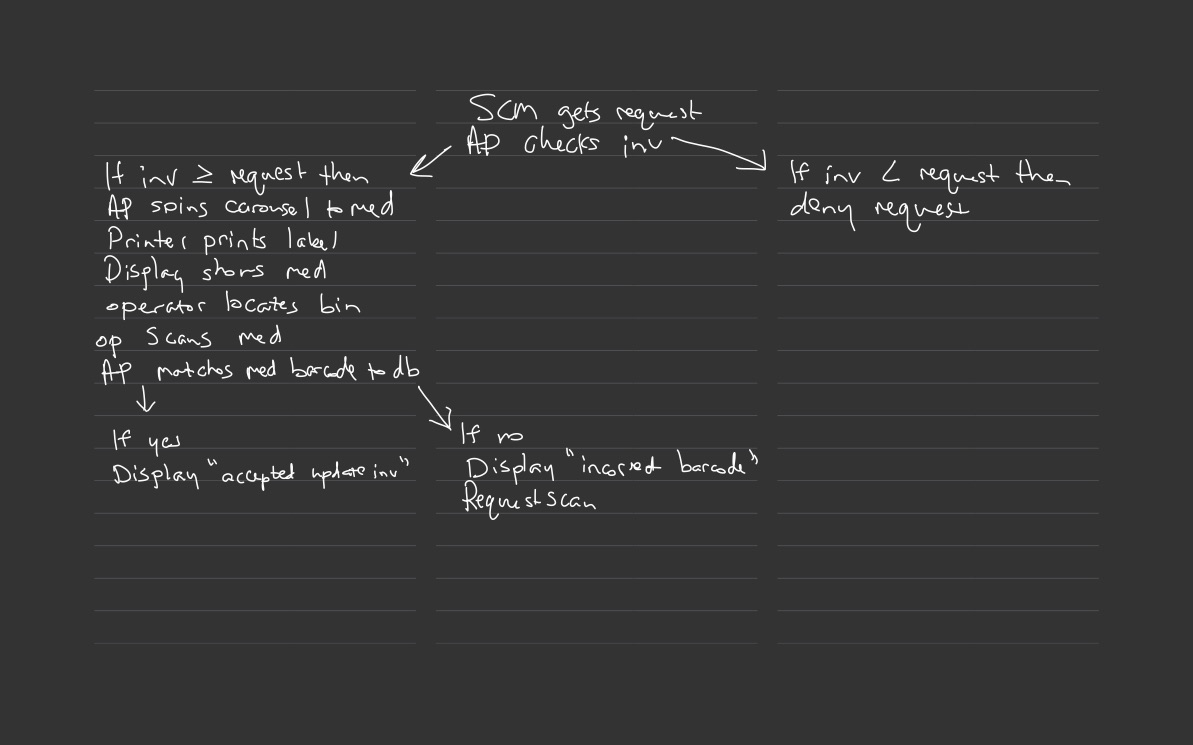 SCM gets request
AP checks inv
If inv ≥ request then
AP spins carousel to med
Printer prints label
Display shows med
operator locates bin
op Scans med
AP matches med barcode to db
If yes
Display "accepted update inv"
If no
Display "incorrect barcode"
Request Scan
If inv < request then
deny request